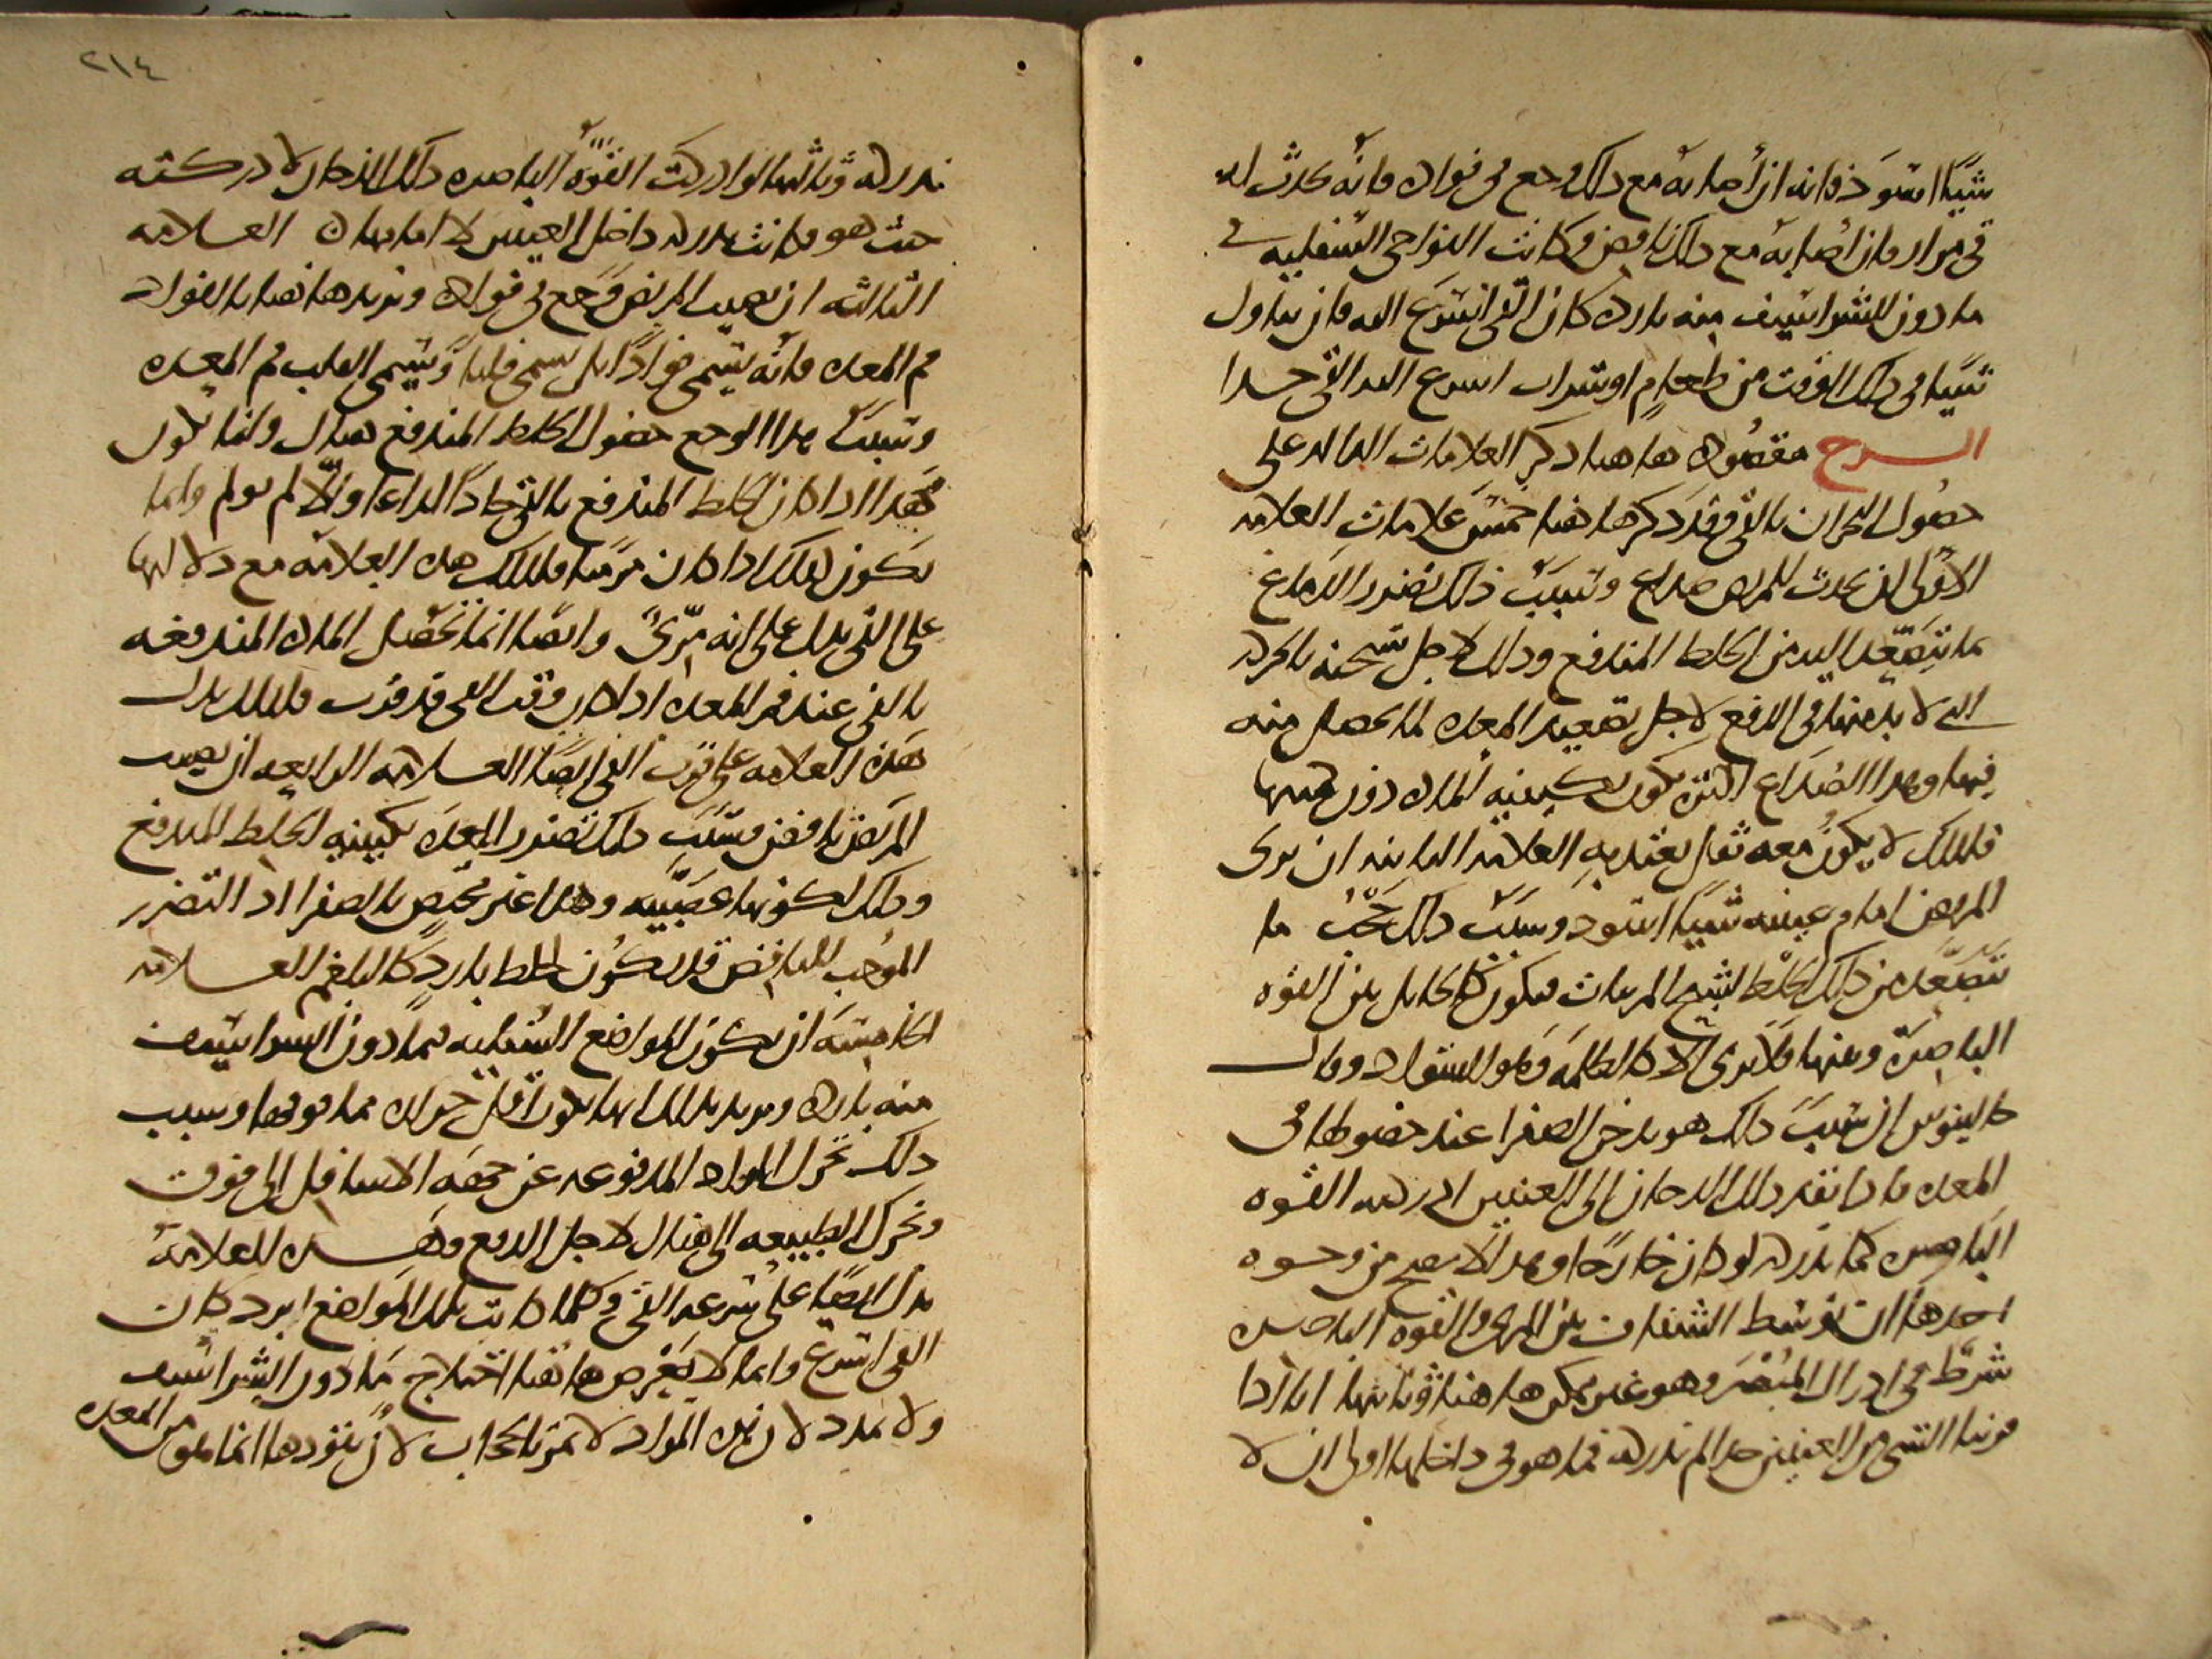 شيئا اسود فانه ان أصابه مع ذلك وجع في فواده فانه يحدث له
قي مرار فان أصابه مع ذلك نافض وكانت النواحي السفلية
ما دون الشراسيف منه باردة كان القي اسرع اليه فان تناول
شيئا في ذلك الوقت من طعام او شراب اسرع اليه القي جدا
الشرح مقصوده هاهنا ذكر العلامات الدالة على
حصول البحران بالقي وقد ذكر هاهنا خمس علامات العلامة
الاولى ان يحدث للمريض صداع وسبب ذلك تضرر الدماغ
بما يتصعد اليه من الخلط المندفع وذلك لاجل تسخنه بالحركة
التي لا بد منها في الدفع لاجل تصعيد المعدة لما يحصل منه
فيها وهذا الصداع اكثره يكون بكيفية المادة دون كميتها
فلذلك لا يكون معه ثقل يعتد به العلامة الثانية ان يرى
المريض امام عينيه شيئا اسود وسبب ذلك حجب ما
يتصعد من ذلك الخلط لشبح المرئيات فيكون كالحايل بين القوة
الباصرة وبينها فلا يرى الا كالظلمة وهو السواد وقال
جالينوس ان سبب ذلك هو تدخن الصفرا عند حصولها في
المعدة فاذا نفذ ذلك الدخان الى العينين ادركته القوة
الباصرة كما تدركه لو كان خارجا وهذا لا يصح من وجوه
احدها ان توسط الشفاف بين المرئي والقوة الباصرة
شرط في ادراك المبصر وهو غير ممكن هاهنا وثانيها انا اذا
قربنا الشي من العينين جدا لم ندركه فما هو في داخلها اولى ان لا
٢١٤
ندركه وثالثها لو ادركت القوة الباصرة ذلك الدخان لادركته
حيث هو فكانت تدركه داخل العينين لا امامهما العلامة
الثالثة ان يصيب المريض وجع في فواده ونريد هاهنا بالفواد
فم المعدة فانه يسمى فوادا بل يسمى قلبا ويسمى القلب فم المعدة
وسبب هذا الوجع حصول الخلط المندفع هناك وانما يكون
هذا اذا كان الخلط المندفع بالقي حادا لذاعا والا لم يولم وانما
يكون كذلك اذا كان مريا فلذلك هذه العلامة مع دلالتها
على القي تدل على انه مري وايضا انما تحصل المادة المندفعة
بالقي عند فم المعدة اذا كان وقت القي قد قرب فلذلك تدل
هذه العلامة على قرب القي ايضا العلامة الرابعة ان يصيب
المريض نافض وسبب ذلك تضرر المعدة بكيفية الخلط المندفع
وذلك لكونها عصبية وهذا غير مختص بالصفرا اذ التضرر
الموجب للنافض قد يكون لخلط بارد كالبلغم العلامة
الخامسة ان يكون المواضع السفلية مما دون الشراسيف
منه باردة ونريد بذلك انها يكون اقل حرارة مما فوقها وسبب
ذلك تحرك المواد المدفوعة عن جهة الاسافل الى فوق
وتحرك الطبيعة الى هناك لاجل الدفع وهذه العلامة
تدل ايضا على سرعة القي وكلما كانت تلك المواضع ابرد كان
القي اسرع وانما لا يعرض هاهنا اختلاج ما دون الشراسيف
ولا تمدد لان هذه المواد لا تمر بالحجاب لان نفوذها انما هو من المعدة